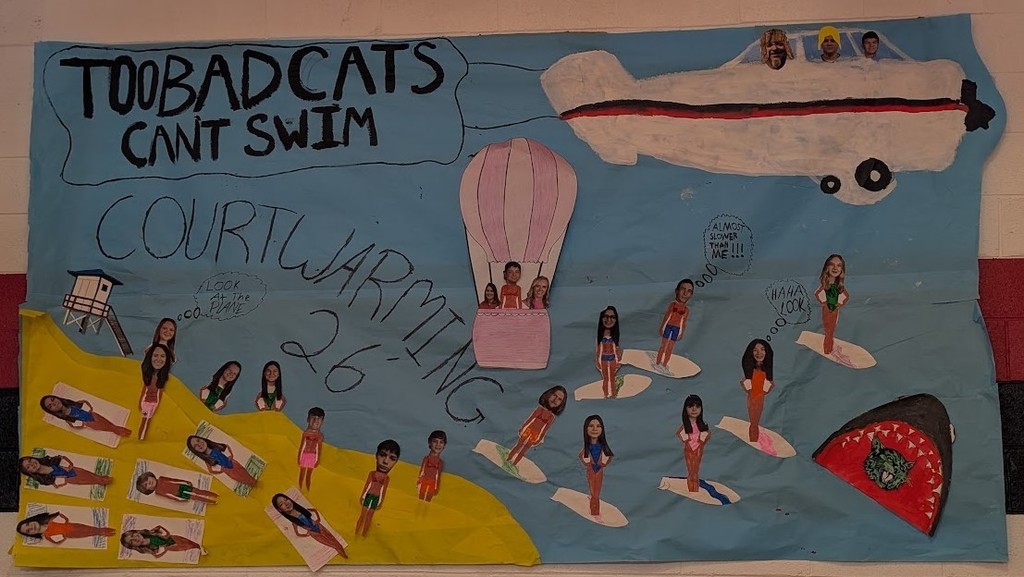 TOOBAD CATS
CANT SWIM
COURTWARMING
26'
LOOK
AT THE
PLANE
ALMOST
SLOWER
THAN
ME!!!
HAHA
LOOK